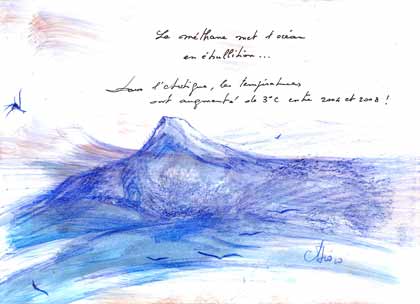 Le méthane met l'océan
en ébullition...
Dans l'Arctique, les températures
ont augmenté de 3°C entre 2004 et 2008 !